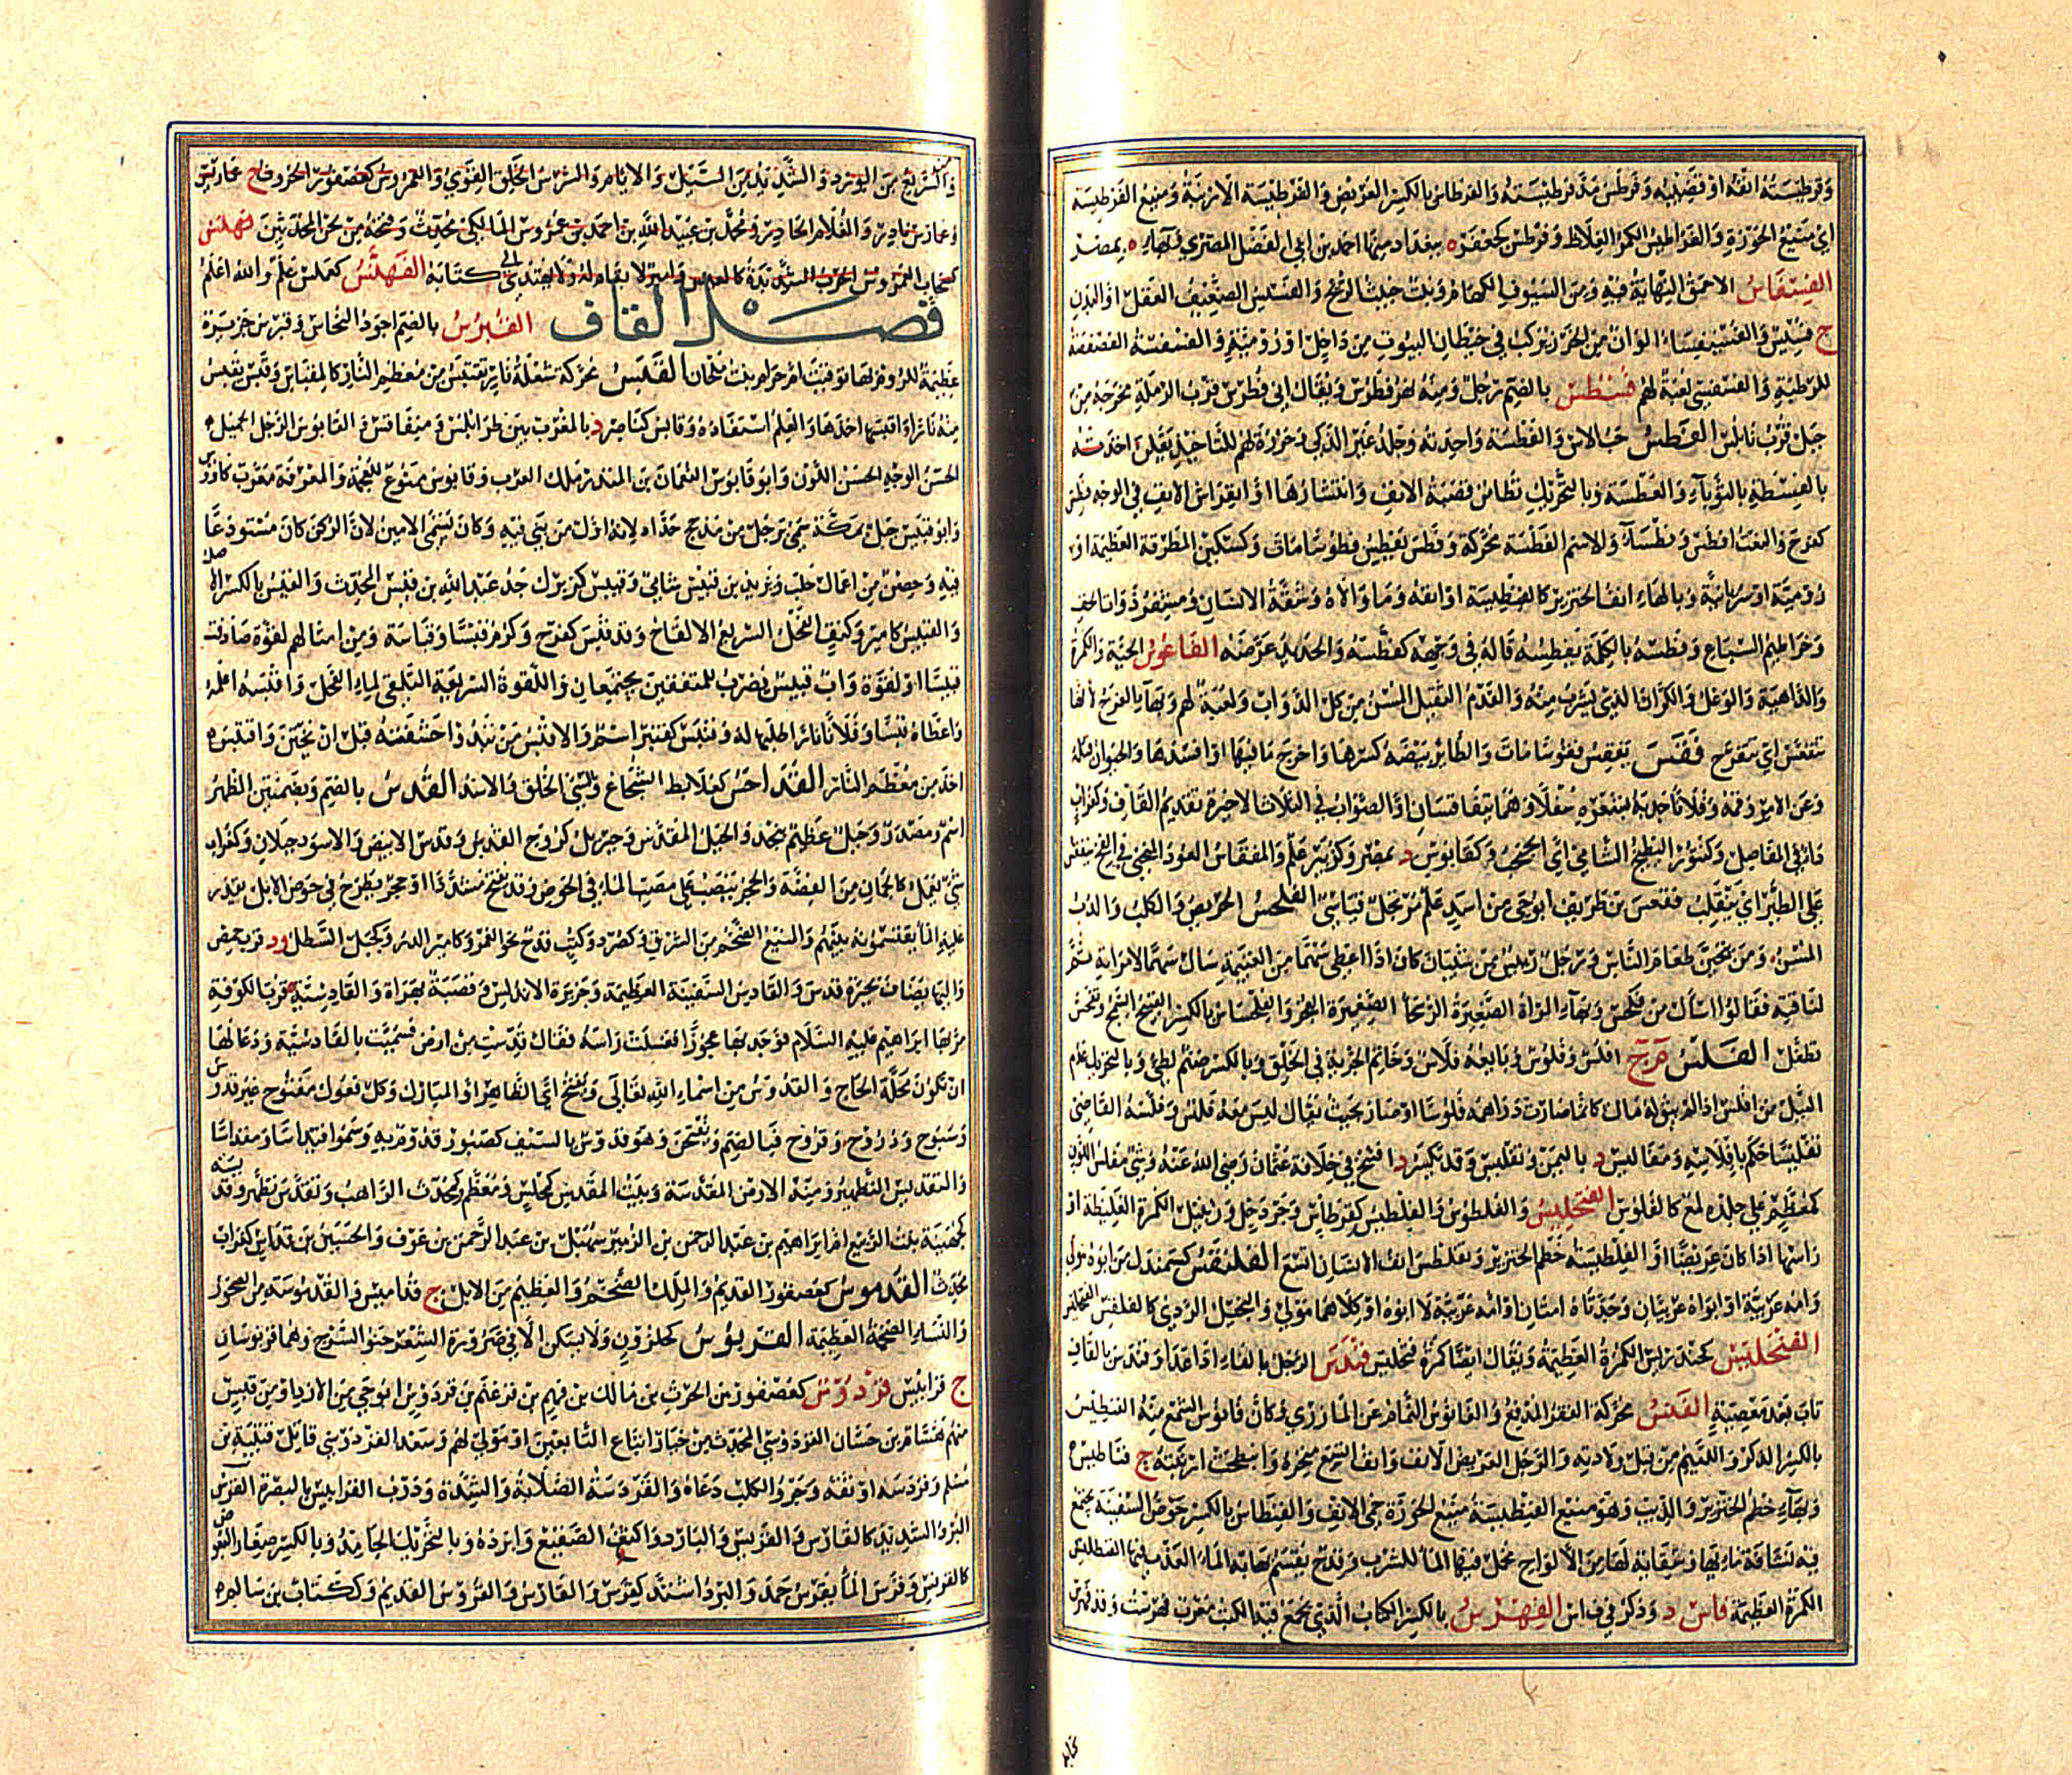 وفرطيسته انفه او قضيبه وفرطس مد فرطيسته والفرطاس بالكسر العريض والفرطيسة الارنبة ومنيع الفرطيسة
اي منيع الحوزة والفراطيس الكمر الغلاظ وفرطس كجعفر ة ببغداد منها احمد بن ابي الفضل المقرئ وة بمصر
الفسفاس الاحمق النهاية فيه ومن السيوف الكهام ونبت خبيث الريح والفسيس الضعيف العقل او البدن
ج فسس والفسيفساء الوان من الخرز تركب في حيطان البيوت من داخل او رومية والفسفسة الفصفصة
للرطبة والفسفسى لعبة لهم فسطس بالضم رجل ومنه نهر فطرس ويقال ابي فطرس قرب الرملة مخرجه من
جبل قرب نابلس الفطس حب الاس والفطسة واحدته وجلد غير الذكي وخرزة لهم للتاخيذ يقلن اخذته
بالفطسة بالثؤباء والعطسة وبالتحريك تطامن قصبة الانف وانتشارها او انفراش الانف في الوجه فطس
كفرح والنعت افطس وفطساء والاسم الفطسة محركة وفطس يفطس فطوسا مات وكسكين المطرقة العظيمة او
رومية او سريانية وبالهاء انف الخنزير كالفنطيسة او انفه وما والاه وشفة الانسان ومشفر ذوات الخف
وخراطيم السباع وفطسه بالكلمة تفطيسه قالها في وجهه كفطسه والحديد عرضه الفاعوس الحية والكمرة
والداهية والوعل والكراز الذي يشرب منه والفدم الثقيل المسن من كل الدواب ولعبة لهم وبهاء الفرج لانها
تتفعس اي تنفرج فقس يفقس فقوسا مات والطائر بيضه كسرها واخرج ما فيها او افسدها والحيوان قتله
وعن الامر وقمه وفلانا جذبه بشعره سفلا وهما يتفاقسان او الصواب في الثلاث الاخيرة تقديم القاف وكغراب
داء في المفاصل وكتنور البطيخ الشامي اي الحبحب وكقابوس د بمصر وكزبير علم والمفقاس العود المنحني في الفخ ينفقس
على الطير اي ينقلب فقعس بن طريف ابو حي من اسد علم مرتجل قياسي الفلحس الحريص والكلب والدب
المسن ومن يتحين طعام الناس ورجل رئيس من شيبان كان اذا اعطي سهما من الغنيمة سال سهما لامراته ثم
لناقته فقالوا اسال من فلحس وبهاء المراة الصغيرة الرسحا الصغيرة العجز والفلحاس بالكسر القبيح السمج وتفلحس
تطفل الفلس م ج افلس وفلوس وبائعه فلاس وخاتم الجزية في الحلق وبالكسر صنم لطيئ وبالتحريك عدم
النيل من افلس اذا لم يبق له مال كانما صارت دراهمه فلوسا او صار بحيث يقال ليس معه فلس وفلسه القاضي
تفليسا حكم بافلاسه ومفاليس د باليمن وتفليس وقد تكسر د افتتح في خلافة عثمان رضي الله عنه وشيء مفلس اللون
كمعظم على جلده لمع كالفلوس الفنجليس والفلطوس والفلطيس كفرطاس وجردحل وزنبيل الكمرة الغليظة او
راسها اذا كان عريضا والفلطيسة خطم الخنزير وتفلطس انف الانسان اتسع الفلنقس كسمندل من ابوه مولى
وامه عربية او ابواه عربيان وجدتاه امتان او امه عربية لا ابوه او كلاهما مولى والبخيل الردي كالفلفس
الفنجليس كخندريس الكمرة العظيمة ويقال ايضا كمرة فنجليس فندس الرجل بالفاء اذا عدا وقندس بالقاف
تاب بعد معصية الفنس محركة الفقر المدقع والفانوس النمام عن المازري وكان فانوس الشمع منه الفنطيس
بالكسر الذكر واللئيم من قبل ولادته والرجل العريض الانف وانف اتسع منخره وانبطحت ارنبته ج فناطيس
وبهاء خطم الخنزير والذيب وهو منيع الفنطيسة منيع الحوزة حمي الانف والفنطاس بالكسر حوض السفينة يجتمع
فيه نشافة مائها وسقاية لها من الالواح تحمل فيها الماء للشرب وقدح يقسم بها به الماء العذب فيها الفنطليس
الكمرة العظيمة فاس د وذكر في ف ا س الفهرس بالكسر الكتاب الذي يجمع فيه الكتب معرب فهرست وقد فهرس
واكثر ايع من البرد والشديد من السيل والايام والشرس الخلق القوي والعمروس كعصفور الخروف ج عماريس
وعمارس نادر والغلام الحادر ومحمد بن عبيد الله بن احمد بن عمروس المالكي محدث وفتحه من لحن المحدثين
كتابة الفهلس كعملس علم والله اعلم
فصل القاف القبرس بالضم اجود النحاس وقبرس جزيرة
عظيمة للروم بها توفيت ام حرام بنت ملحان القبس محركة شعلة نار تقتبس من معظم النار كالمقباس وقبس يقبس
منه نارا واقتبسها اخذها والعلم استفاده وقابس كناصر د بالمغرب بين طرابلس وسفاقس والقابوس الرجل الجميل
الحسن الوجه الحسن اللون وابو قابوس النعمان بن المنذر ملك العرب وقابوس ممنوع للعجمة والمعرفة معرب كاووس
وابو قبيس جبل بمكة سمي برجل من مذحج حداد لانه اول من بنى فيه وكان يسمى الامين لان الركن كان مستودعا
فيه وحصن من اعمال حلب ويزيد بن قبيس شامي وقبيس كزبير جد عبد الله بن قبيس المحدث والقبس بالكسر الاصل
والقبيس كامير وكتف الفحل السريع الالقاح وقد قبس كفرح وكرم قبسا وقباسة ومن امثالهم لقوة صادفت
قبيسا او لقوة واب قبيس يضرب للمتفقين يجتمعان واللقوة السريعة التلقي لماء الفحل واقبسه اعلمه
واعطاه قبسا وفلانا نارا طلبها له وقنبس كعنبر اسم والاقبس من تبدو حشفته قبل ان يختن واقتبس
اخذ من معظم النار القداحس كعلابط الشجاع والسيئ الخلق والاسد القدس بالضم وبضمتين الطهر
اسم ومصدر وجبل عظيم بنجد والبيت المقدس وجبريل كروح القدس وقدس الابيض والاسود جبلان وكغراب
شيء يعمل كالجمان من الفضة والحجر ينصب على مصب الماء في الحوض وقد يفتح مشددا او حجر يطرح في حوض الابل يقدر
عليه الماء يقتسمونه بينهم والمنيع الضخم من الشرف وكصرد وكتب قدح نحو الغمر وكامير الدر وكجبل السطل ود قرب حمص
واليها يضاف بحيرة قدس والقادس السفينة العظيمة وجزيرة بالاندلس وقصبة بهراة والقادسية ة قرب الكوفة
مر بها ابراهيم عليه السلام فوجد بها عجوزا فغسلت راسه فقال قدست من ارض فسميت بالقادسية ودعا لها
ان تكون محلة الحاج والقدوس من اسماء الله تعالى ويفتح اي الطاهر او المبارك وكل فعول مفتوح غير قدوس
وسبوح وذروح وفروخ فبالضم ويفتحن وهو قدوس بالسيف كصبور قدوم به وسموا قيداسا ومقداسا
والتقديس التطهير ومنه الارض المقدسة وبيت المقدس كمجلس ومعظم وكمحدث الراهب وتقدس تطهر وقديسة
كجهينة بنت الربيع ام ابراهيم بن عبد الرحمن بن الزبير سهيل بن عبد الرحمن بن عوف والحسين بن قداس كغراب
محدث القدموس كعصفور القديم والملك الضخم والعظيم من الابل ج قداميس والقدموسة من الصخور
والنساء الضخمة العظيمة القربوس كحلزون ولا يسكن الا في ضرورة الشعر حنو السرج وهما قربوسان
ج قرابيس قردوس كعصفور بن الحرث بن مالك بن فهم بن غنم بن قردوس ابو حي من الازد او من قيس
منهم هشام بن حسان القردوسي المحدث من خيار اتباع التابعين او مولى لهم وسعد القردوسي قاتل قتيبة بن
مسلم وقردسه اوثقه وجرو الكلب دعاه والقردسة الصلابة والشدة ودرب القراديس بالبصرة القرس
البرد الشديد كالقارس والقريس والبارد واكثف الصقيع وابرده وبالتحريك الجامد وبالكسر صغار البعوض
كالقرقس وقرس الماء يقرس جمد والبرد اشتد كقرس والقارس والقروس القديم وككتاب بن سالم